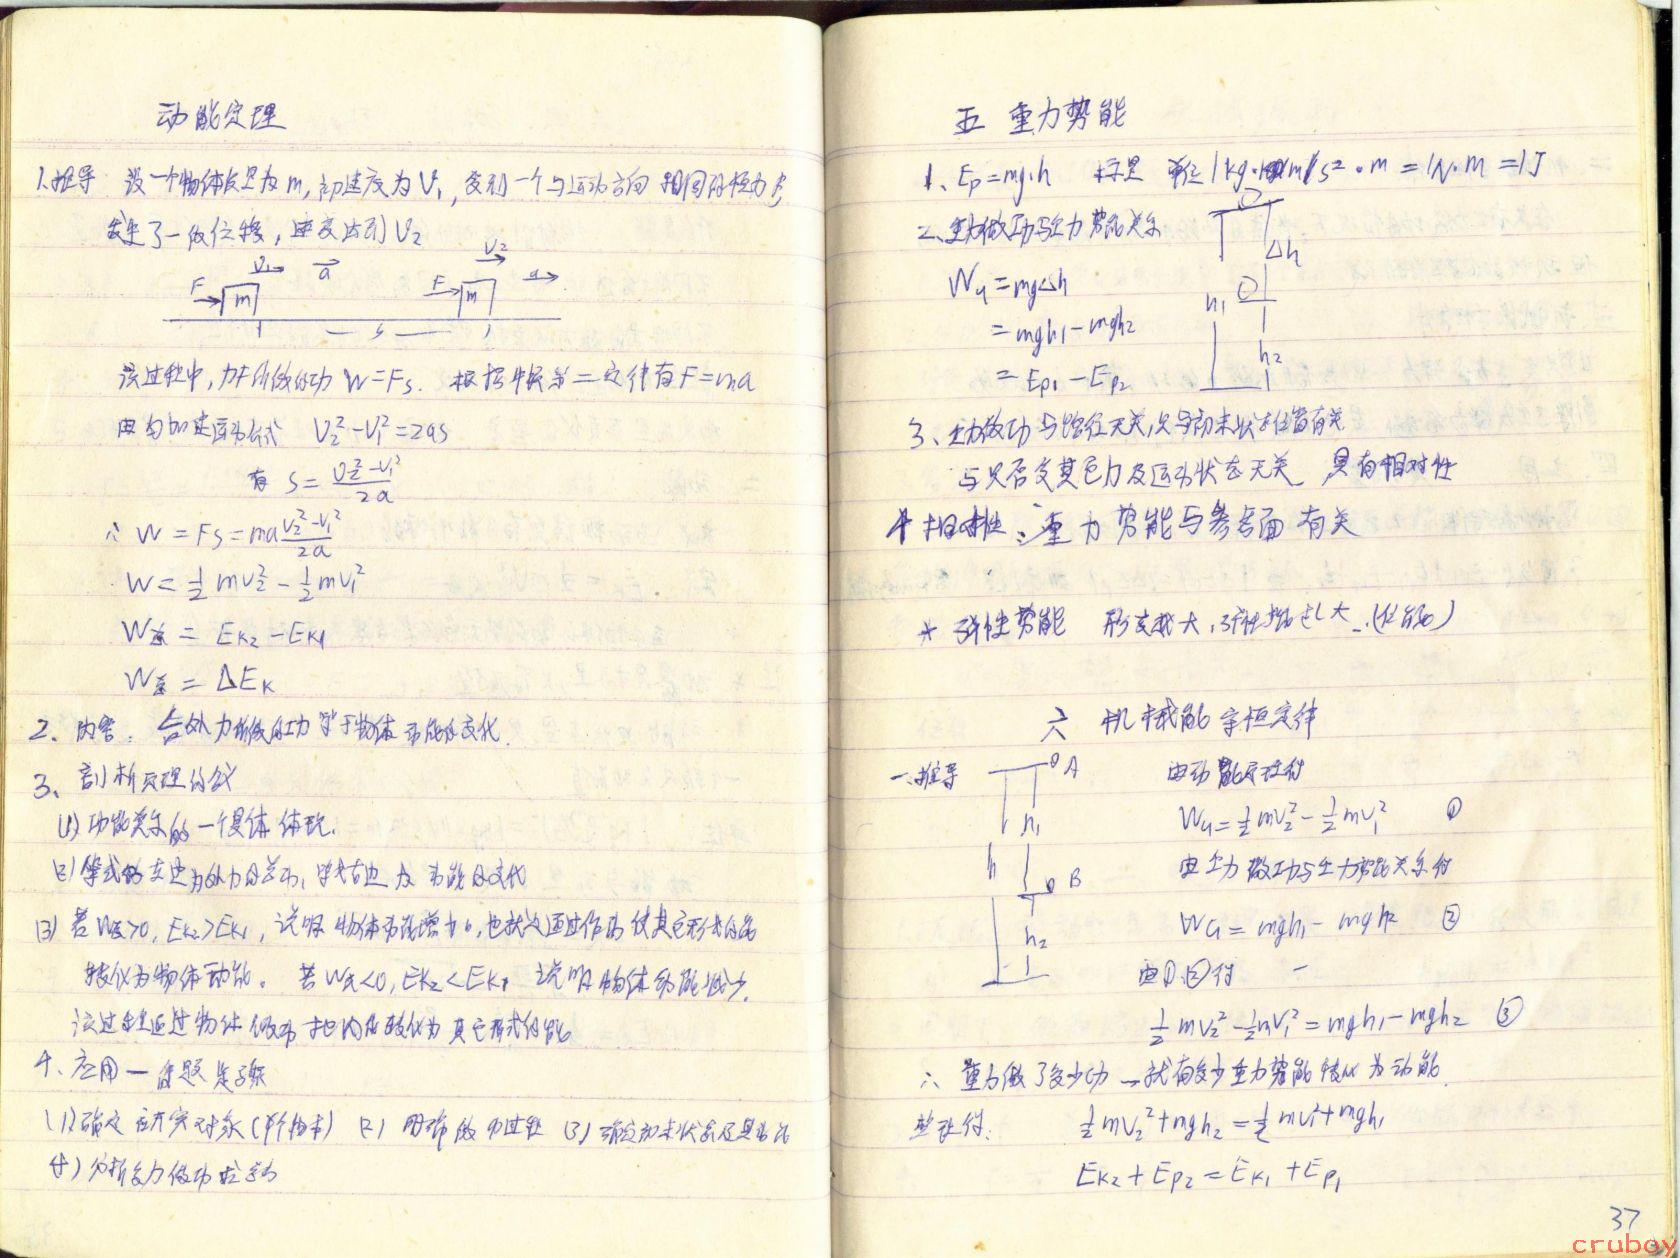 动能定理
1.推导 设一个物体质量为m,初速度为V₁,受到一个与运动方向相同的恒力F,
发生了一段位移,速度达到V₂
V₁ a V₂ a
F m F m
s
该过程中,力F所做的功 W=Fs. 根据牛顿第二定律有F=ma
由匀加速运动公式 V₂²-V₁²=2as
有 S=(V₂²-V₁²)/2a
∴ W=Fs=ma(V₂²-V₁²)/2a
W=½mV₂²-½mV₁²
W总=Ek₂-Ek₁
W总=ΔEk
2、内容: 合外力所做的功等于物体动能的变化.
3、剖析定理的含义
(1)功能关系的一个具体体现.
(2)等式的左边为外力的总功,等式右边为动能的变化
(3)若W总>0,Ek₂>Ek₁,说明物体动能增加,也就是通过作功使其它形式的能
转化为物体动能。 若W总<0,Ek₂<Ek₁ 说明物体动能减少.
该过程是通过物体做功把动能转化为其它形式的能
4、应用—解题步骤
(1)确定研究对象(单个物体) (2)明确做功过程 (3)确定初末状态及其动能
(4)分析受力做功求总功
五 重力势能
1、Ep=mg·h 标量 单位1kg·m/s²·m=1N·m=1J
2、重力做功与重力势能关系
Δh
WG=mgΔh
h₁
=mgh₁-mgh₂
h₂
=Ep₁-Ep₂
3、重力做功与路径无关,只与初末状态位置有关
与是否受其它力及运动状态无关 具有相对性
4 相对性:重力势能与参考面有关
* 弹性势能 形变越大,弹性势能越大
六 机械能守恒定律
一、推导 A 由动能定理得
h₁ WG=½mV₂²-½mV₁² ①
h B 由重力做功与重力势能关系得
h₂ WG=mgh₁-mgh₂ ②
由①②得
½mV₂²-½mV₁²=mgh₁-mgh₂ ③
∴ 重力做了多少功—就有多少重力势能转化为动能.
整理得: ½mV₂²+mgh₂=½mV₁²+mgh₁
Ek₂+Ep₂=Ek₁+Ep₁
37
cruboy